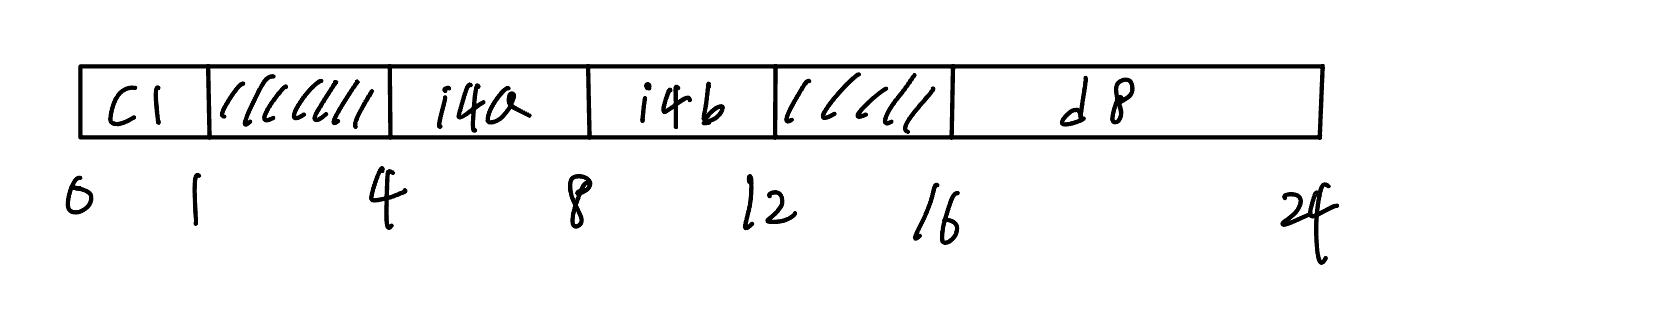 C1 i4a i4b d8
0 1 4 8 12 16 24